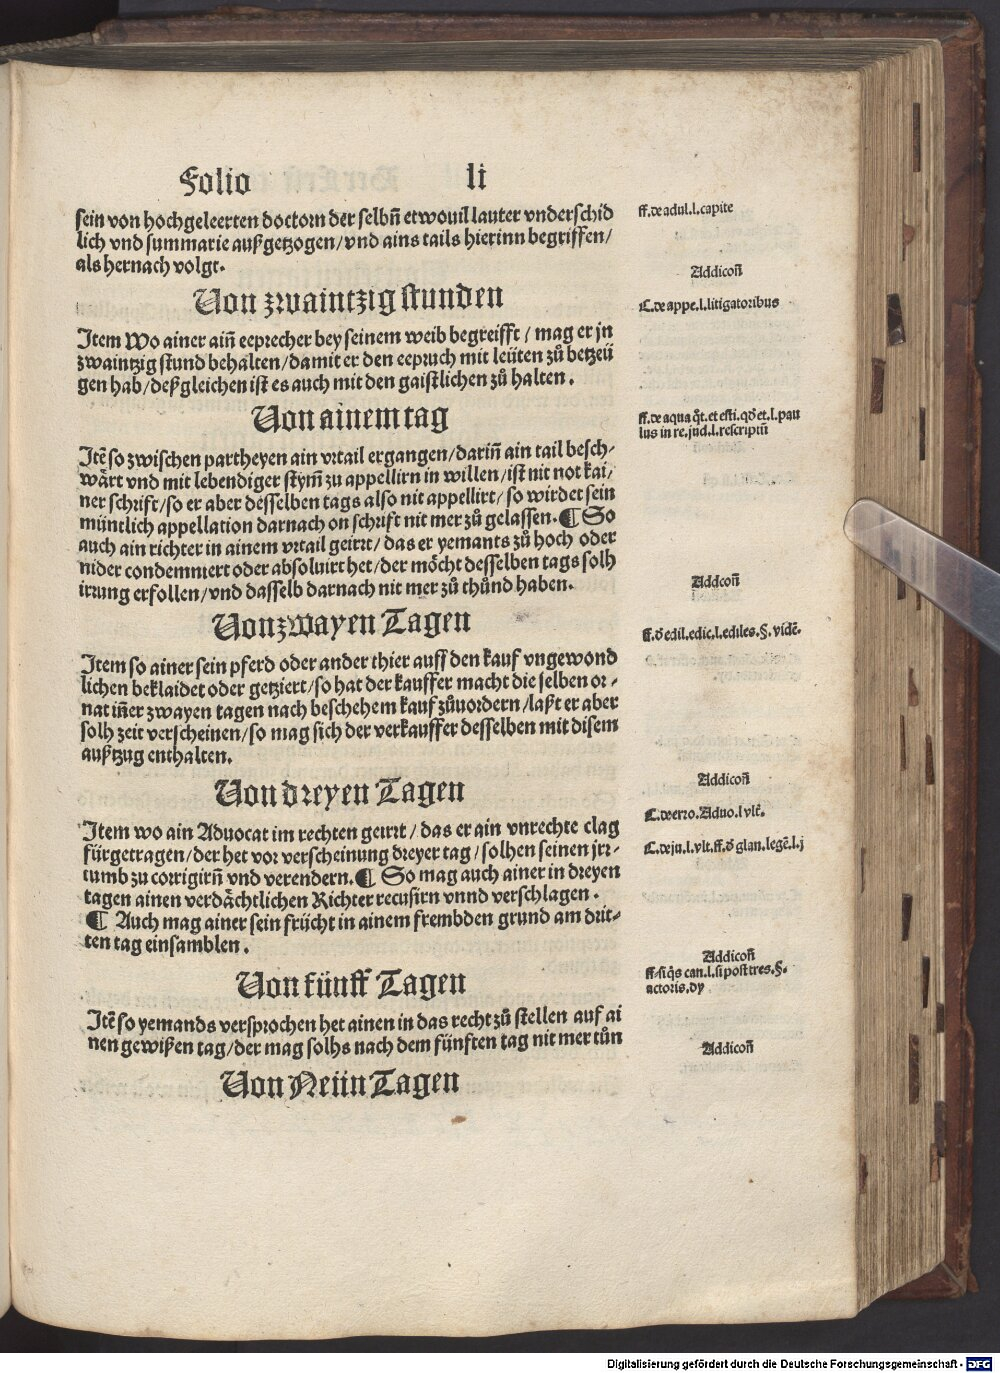 Folio li
sein von hochgeleerten doctorn der selbñ etwouil lauter vnderschid
lich vnd summarie außgetzogen/vnd ains tails hierinn begriffen/
als hernach volgt.
Von zwaintzig stunden
Item Wo ainer aiñ eeprecher bey seinem weib begreifft/ mag er jn
zwaintzig stund behalten/damit er den eepruch mit leüten zů betzeü
gen hab/deßgleichen ist es auch mit den gaistlichen zů halten.
Von ainem tag
Itẽ so zwischen partheyen ain vrtail ergangen/dariñ ain tail besch-
wärt vnd mit lebendiger stym̃ zu appellirn in willen/ist nit not kai/
ner schrift/so er aber desselben tags also nit appellirt/so wirdet sein
müntlich appellation darnach on schrift nit mer zů gelassen.¶ So
auch ain richter in ainem vrtail geirrt/das er yemants zů hoch oder
nider condemniert oder absoluirt het/der möcht desselben tags solh
irrung erfollen/vnd dasselb darnach nit mer zů thůnd haben.
Von zwayen Tagen
Item so ainer sein pferd oder ander thier auff den kauf vngewond
lichen beklaidet oder getziert/so hat der kauffer macht die selben or-
nat iñer zwayen tagen nach beschehem kauf zůuordern/laßt er aber
solh zeit verscheinen/so mag sich der verkauffer desselben mit disem
außtzug enthalten.
Von dreyen Tagen
Item wo ain Aduocat im rechten geirrt/das er ain vnrechte clag
fürgetragen/der het vor verscheinung dreyer tag/solhen seinen jrr-
tumb zu corrigirñ vnd verendern.¶ So mag auch ainer in dreyen
tagen ainen verdächtlichen Richter recusirn vnnd verschlagen.
¶ Auch mag ainer sein frücht in ainem frembden grund am drit-
ten tag einsamblen.
Von fünff Tagen
Itẽ so yemands versprochen het ainen in das recht zů stellen auf ai
nen gewißen tag/der mag solhs nach dem fünften tag nit mer tůn
Von Neün Tagen
ff.de adul.l.capite
Addicoñ
C.de appe.l.litigatoribus
ff.de aqua q̃t.et esti.qđ et.l.pau
lus in re.jud.l.rescriptũ
Addcoñ
ff.đ edil.edic.l.ediles.§.vidẽ.
Addicoñ
C.de erro.Aduo.l vlt̃.
C.de ju.l.vlt.ff.đ glan.legẽ.l.j
Addicoñ
ff.siq̃s can.l.si post tres.§.
actoris.dy
Addicoñ
Digitalisierung gefördert durch die Deutsche Forschungsgemeinschaft - DFG